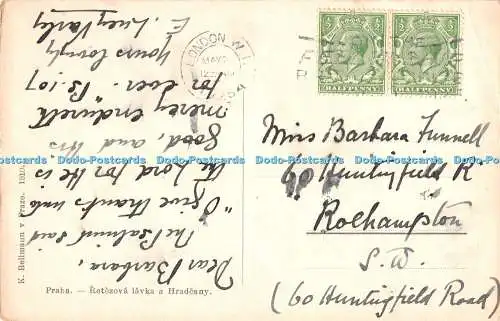 Dear Barbara,
The Psalmist said
"O give thanks unto
the Lord for He is
good, and His
mercy endureth
for ever. Ps. 107
Yours lovingly
E. Lucy
LONDON W.1
MAY
HALFPENNY
HALFPENNY
Miss Barbara Funnell
60 Huntingfield R
Roehampton
S.W.
(60 Huntingfield Road)
Praha. – Řetězová lávka a Hradčany.
K. Bellmann v Praze. 1320.
Dodo-Postcards Dodo-Postcards Dodo-Postcards Dodo-Postcards Dodo-Postcards